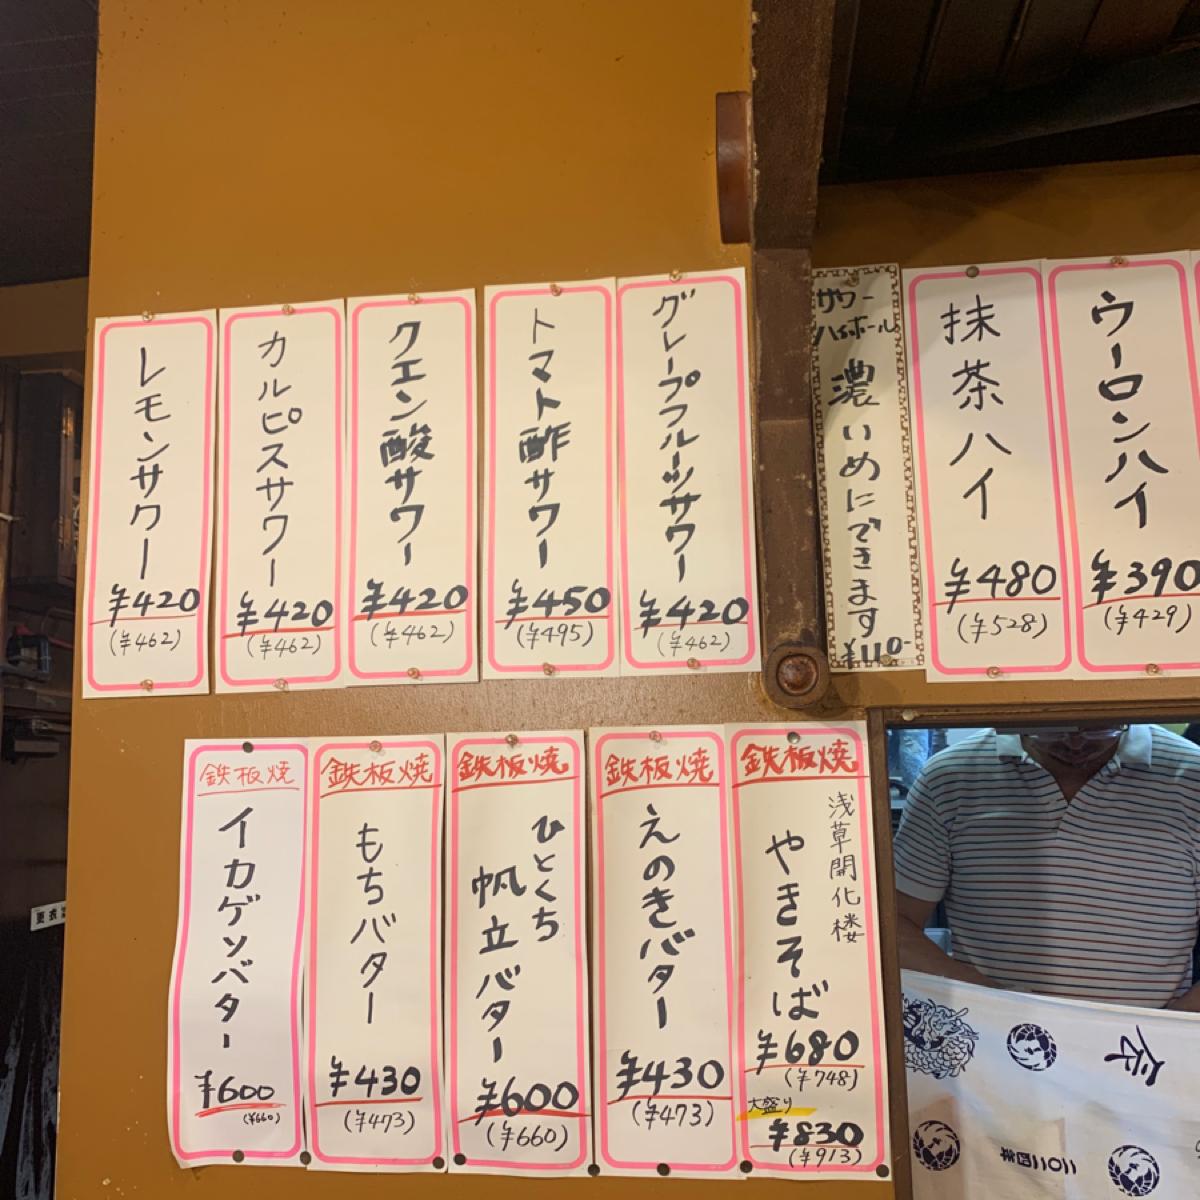 レモンサワー
¥420
(¥462)
カルピスサワー
¥420
(¥462)
クエン酸サワー
¥420
(¥462)
トマト酢サワー
¥450
(¥495)
グレープフルーツサワー
¥420
(¥462)
サワー
ハイボール
濃いめにできます
¥110-
抹茶ハイ
¥480
(¥528)
ウーロンハイ
¥390
(¥429)
鉄板焼
イカゲソバター
¥600
(¥660)
鉄板焼
もちバター
¥430
(¥473)
鉄板焼
ひとくち
帆立バター
¥600
(¥660)
鉄板焼
えのきバター
¥430
(¥473)
鉄板焼
浅草開化楼
やきそば
¥680
(¥748)
大盛り
¥830
(¥913)
更衣
二〇二四年